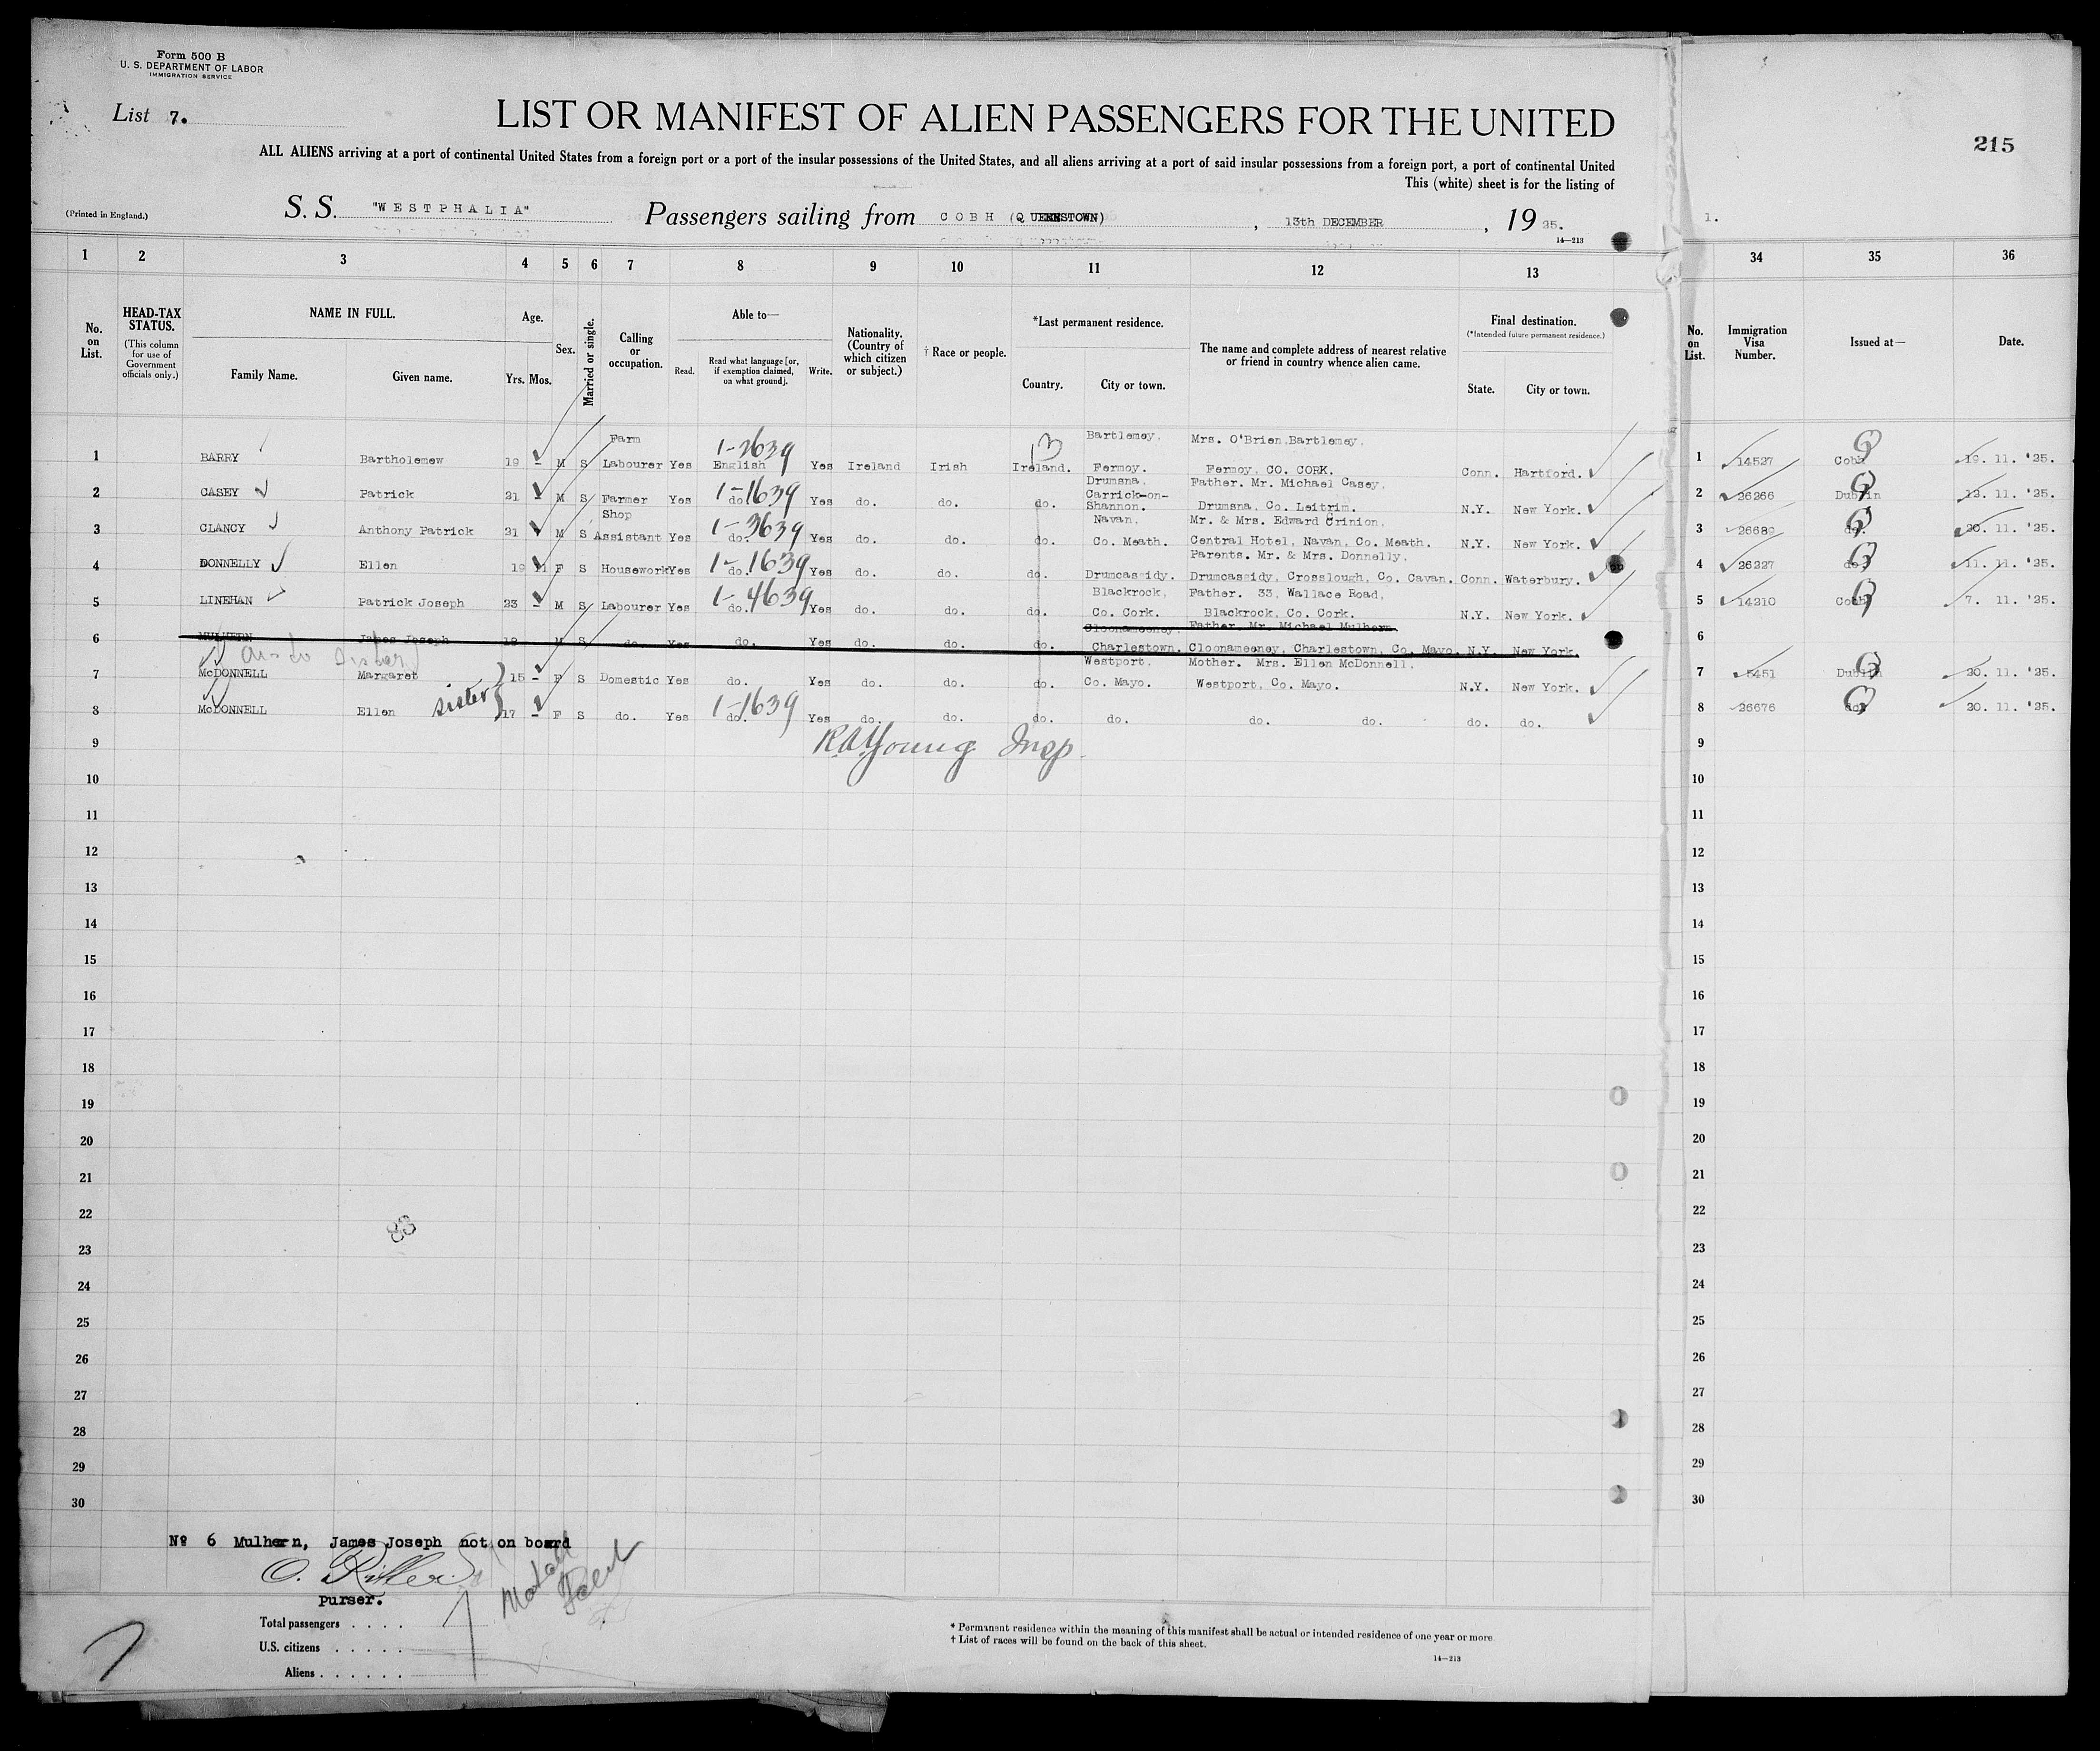 Form 500 B
U. S. DEPARTMENT OF LABOR
IMMIGRATION SERVICE
List 7.
LIST OR MANIFEST OF ALIEN PASSENGERS FOR THE UNITED
215
ALL ALIENS arriving at a port of continental United States from a foreign port or a port of the insular possessions of the United States, and all aliens arriving at a port of said insular possessions from a foreign port, a port of continental United
This (white) sheet is for the listing of
(Printed in England.)
S. S. "WESTPHALIA" Passengers sailing from COBH (QUEENSTOWN), 13th DECEMBER, 19 25.
1.
14—213
1 2 3 4 5 6 7 8 9 10 11 12 13 34 35 36
No. on List.
HEAD-TAX STATUS.
(This column for use of Government officials only.)
NAME IN FULL.
Family Name. Given name.
Age.
Yrs. Mos.
Sex.
Married or single.
Calling or occupation.
Able to—
Read. Read what language [or, if exemption claimed, on what ground]. Write.
Nationality. (Country of which citizen or subject.)
† Race or people.
*Last permanent residence.
Country. City or town.
The name and complete address of nearest relative or friend in country whence alien came.
Final destination.
(*Intended future permanent residence.)
State. City or town.
No. on List.
Immigration Visa Number.
Issued at—
Date.
1-2639
1 BARRY Bartholemew 19 - M S Farm Labourer Yes English Yes Ireland Irish Ireland. Bartlemey, Fermoy. Mrs. O'Brien, Bartlemey, Fermoy, CO. CORK. Conn. Hartford. 1 14527 Cobh 19. 11. '25.
1-1639
2 CASEY Patrick 21 - M S Farmer Yes do. Yes do. do. do. Drumsna, Carrick-on-Shannon. Father. Mr. Michael Casey, Drumsna, Co. Leitrim. N.Y. New York. 2 26266 Dublin 12. 11. '25.
1-3639
3 CLANCY Anthony Patrick 21 M S Shop Assistant Yes do. Yes do. do. do. Navan, Co. Meath. Mr. & Mrs. Edward Crinion, Central Hotel, Navan, Co. Meath. N.Y. New York. 3 26689 do. 20. 11. '25.
1-1639
4 DONNELLY Ellen 19 11 F S Housework Yes do. Yes do. do. do. Drumcassidy. Parents. Mr. & Mrs. Donnelly, Drumcassidy, Crosslough, Co. Cavan. Conn. Waterbury. 4 26227 do. 11. 11. '25.
1-4639
5 LINEHAN Patrick Joseph 23 - M S Labourer Yes do. Yes do. do. do. Blackrock, Co. Cork. Father. 33, Wallace Road, Blackrock, Co. Cork. N.Y. New York. 5 14210 Cobh 7. 11. '25.
6 MULHERN James Joseph 19 M S do. Yes do. Yes do. do. do. Cloonameeney, Charlestown. Father. Mr. Michael Mulhern Cloonameeney, Charlestown, Co. Mayo. N.Y. New York. 6
7 McDONNELL Margaret 15 - F S Domestic Yes do. Yes do. do. do. Westport, Co. Mayo. Mother. Mrs. Ellen McDonnell, Westport, Co. Mayo. N.Y. New York. 7 5451 Dublin 20. 11. '25.
sister
1-1639
8 McDONNELL Ellen 17 - F S do. Yes do. Yes do. do. do. do. do. do. do. do. 8 26676 do. 20. 11. '25.
R.A. Young Insp.
9 9
10 10
11 11
12 12
13 13
14 14
15 15
16 16
17 17
18 18
19 19
20 20
21 21
22 22
83
23 23
24 24
25 25
26 26
27 27
28 28
29 29
30 30
No 6 Mulhern, James Joseph not on board
purser.
Total passengers . . . .
U.S. citizens . . . . .
Aliens . . . . . .
7
* Permanent residence within the meaning of this manifest shall be actual or intended residence of one year or more.
† List of races will be found on the back of this sheet.
14—213